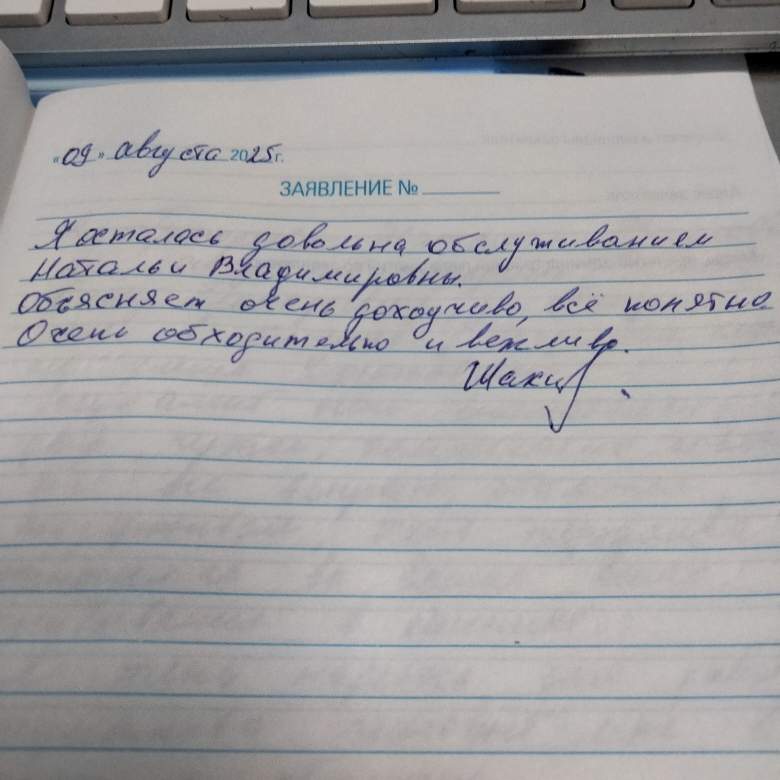 «09» августа 2025г.
ЗАЯВЛЕНИЕ №
Я осталась довольна обслуживанием
Натальи Владимировны.
Объясняет очень доходчиво, всё понятно.
Очень обходительно и вежливо.